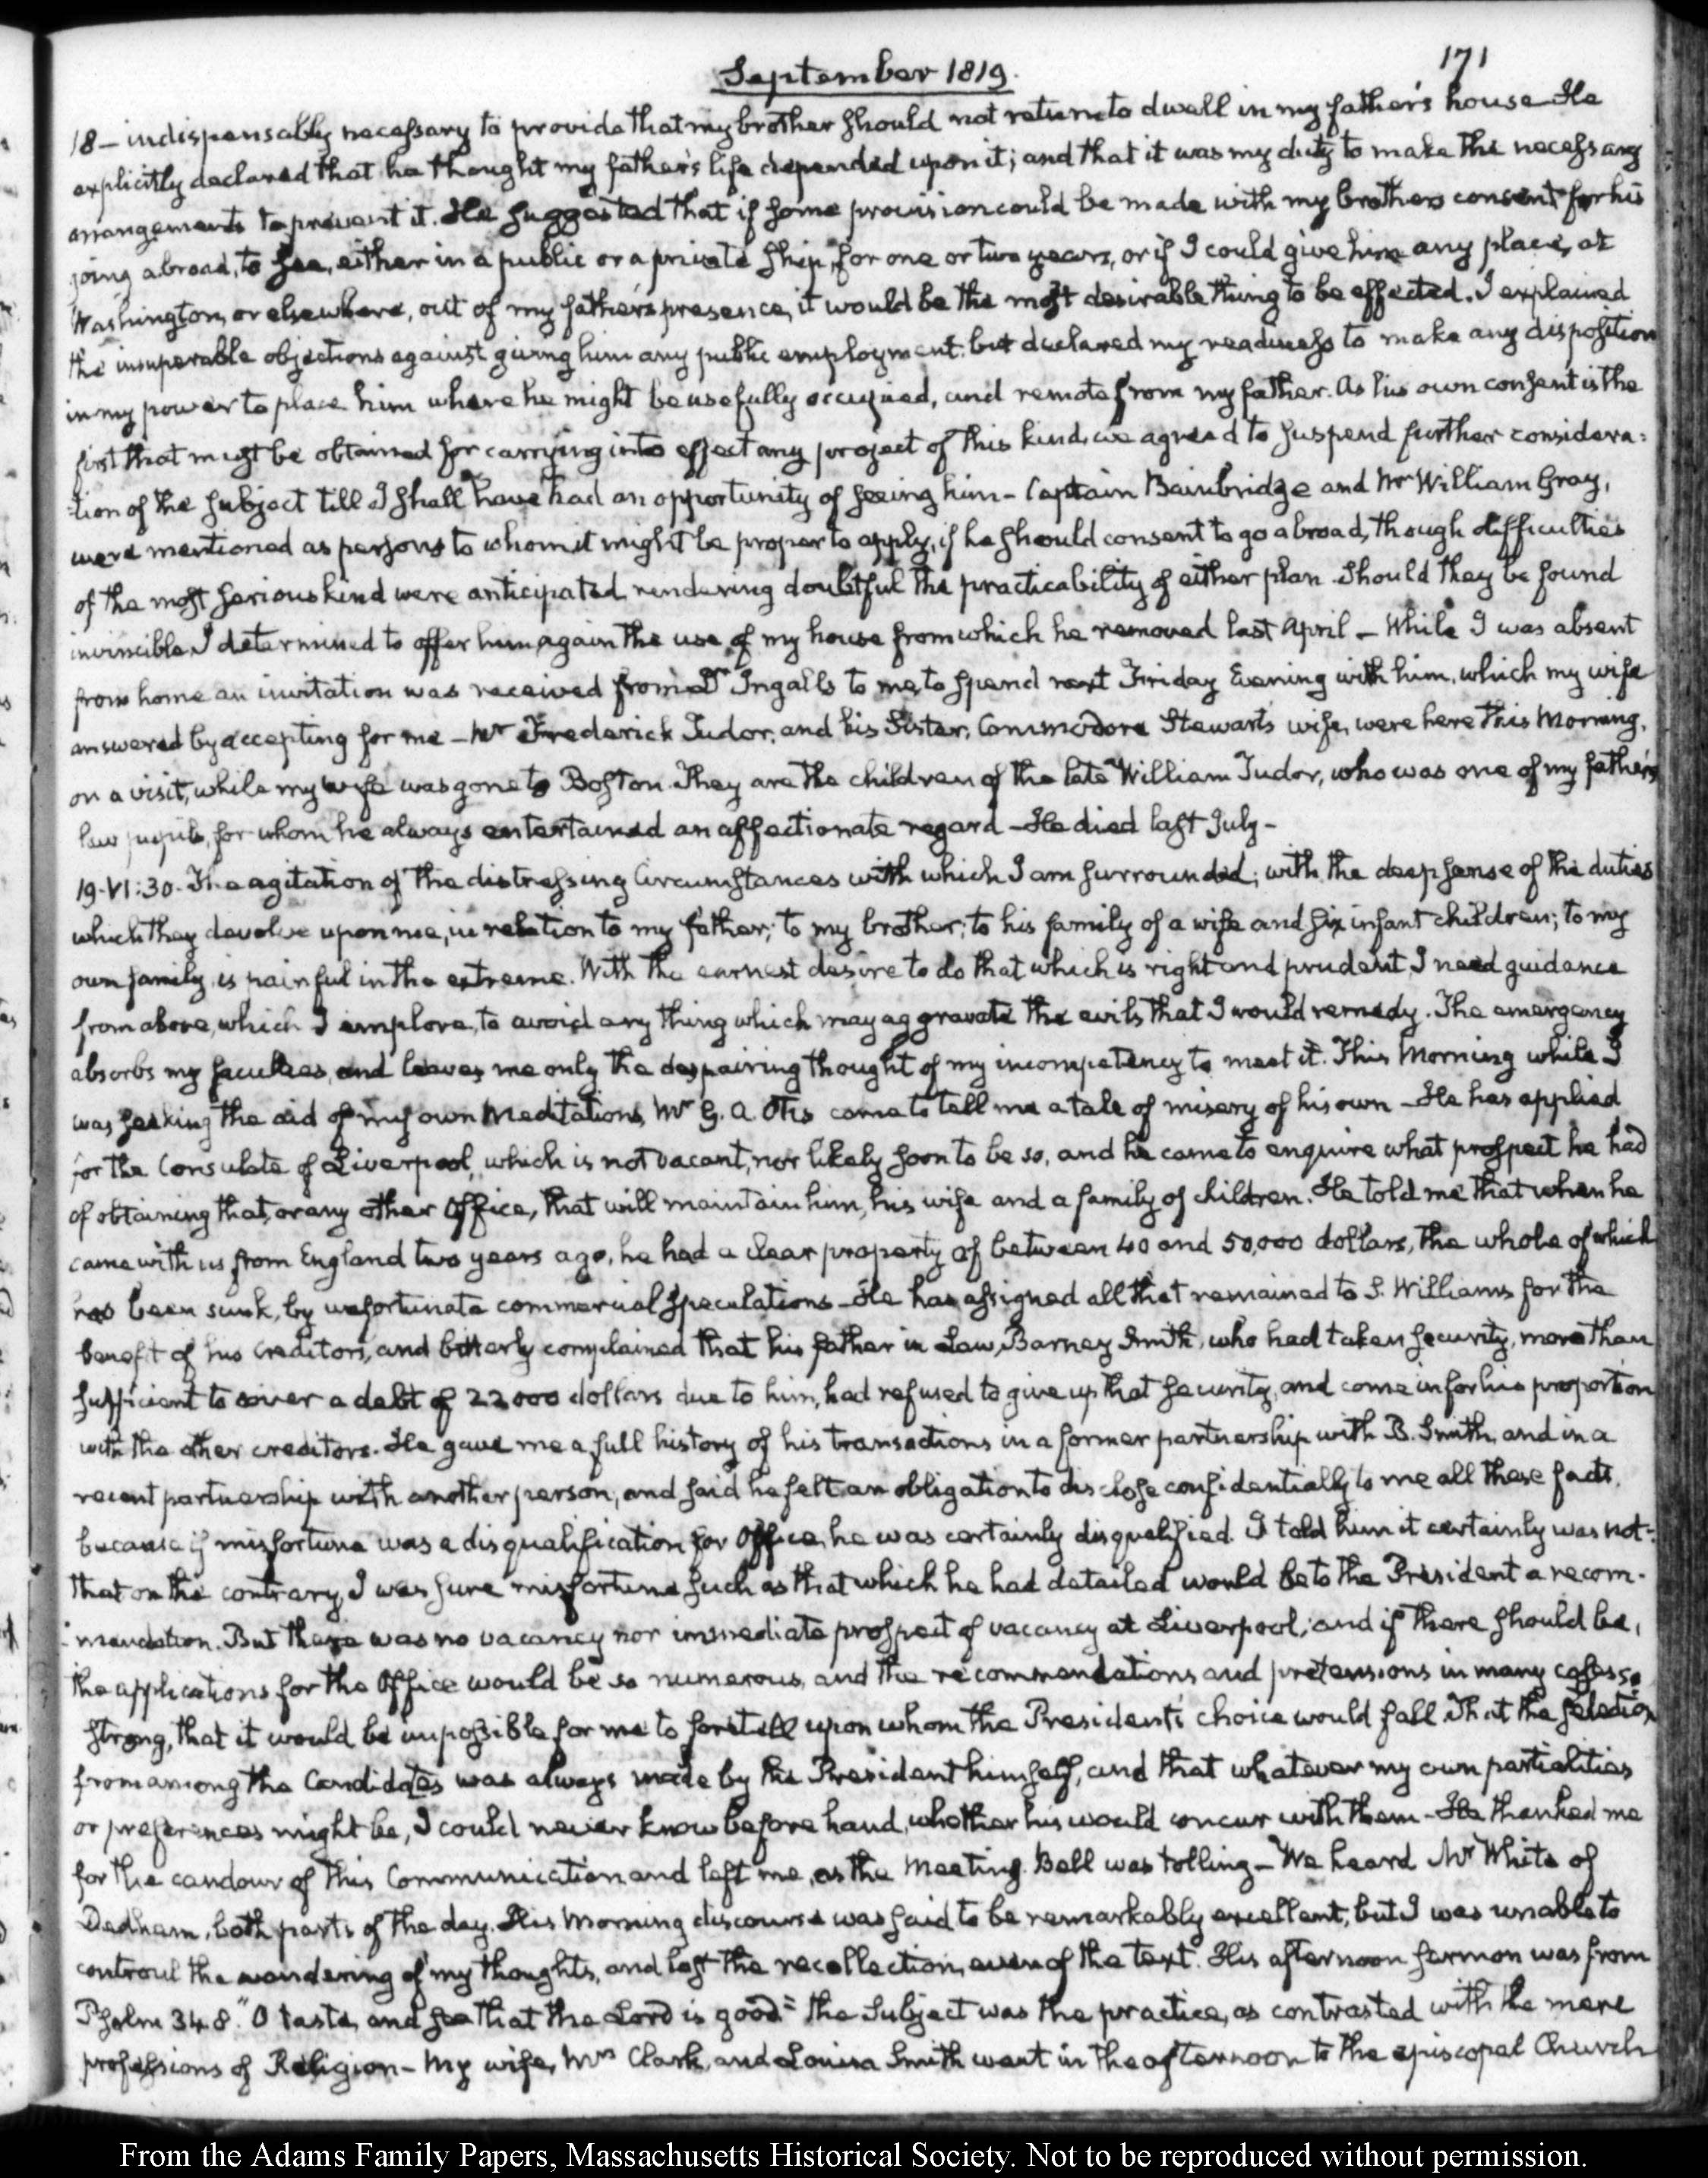 September 1819.
171
18 – indispensably necessary to provide that my brother should not return to dwell in my father's house – He
explicitly declared that he thought my father's life depended upon it; and that it was my duty to make the necessary
arrangements to prevent it. He suggested that if some provision could be made with my brothers consent for his
going abroad, to sea, either in a public or a private ship, for one or two years, or if I could give him any place, at
Washington, or elsewhere, out of my father's presence, it would be the most desirable thing to be effected. I explained
the insuperable objections against giving him any public employment: but declared my readiness to make any disposition
in my power to place him where he might be usefully occupied, and remote from my father. As his own consent is the
first that must be obtained for carrying into effect any project of this kind, we agreed to suspend further considera:
:tion of the subject till I shall have had an opportunity of seeing him – Captain Bainbridge and Mr William Gray,
were mentioned as persons to whom it might be proper to apply, if he should consent to go abroad, though difficulties
of the most serious kind were anticipated, rendering doubtful the practicability of either plan. Should they be found
invincible I determined to offer him again the use of my house from which he removed last April – While I was absent
from home an invitation was received from Dr Ingalls to me, to spend next Friday Evening with him, which my wife
answered by accepting for me – Mr Frederick Tudor, and his Sister, Commodore Stewart's wife, were here this Morning,
on a visit, while my wife was gone to Boston. They are the children of the late William Tudor, who was one of my father's
law pupils, for whom he always entertained an affectionate regard – He died last July –
19. VI:30. The agitation of the distressing Circumstances with which I am surrounded; with the deep sense of the duties
which they devolve upon me, in relation to my father; to my brother; to his family of a wife and six infant children; to my
own family, is painful in the extreme. With the earnest desire to do that which is right and prudent I need guidance
from above, which I implore, to avoid any thing which may aggravate the evils that I would remedy. The emergency
absorbs my faculties, and leaves me only the despairing thought of my incompetency to meet it. This Morning while I
was seeking the aid of my own Meditations, Mr G. A. Otis came to tell me a tale of misery of his own – He has applied
for the Consulate of Liverpool, which is not vacant, nor likely soon to be so, and he came to enquire what prospect he had
of obtaining that, or any other Office, that will maintain him, his wife and a family of children. He told me that when he
came with us from England two years ago, he had a clear property of between 40 and 50,000 dollars, the whole of which
has been sunk, by unfortunate commercial speculations – He has assigned all that remained to S. Williams for the
benefit of his Creditors, and bitterly complained that his father in Law, Barney Smith, who had taken security, more than
sufficient to cover a debt of 22000 dollars due to him, had refused to give up that security, and come in for his proportion
with the other creditors. He gave me a full history of his transactions in a former partnership with B. Smith, and in a
recent partnership with another person, and said he felt an obligation to disclose confidentially to me all these facts,
because if misfortune was a disqualification for Office, he was certainly disqualified. I told him it certainly was not:
that on the contrary, I was sure misfortune such as that which he had detailed would be to the President a recom-
:mendation. But there was no vacancy nor immediate prospect of vacancy at Liverpool; and if there should be,
the applications for the Office would be so numerous, and the recommendations and pretensions in many cases so
strong, that it would be impossible for me to foretell upon whom the President's choice would fall. That the selection
from among the Candidates was always made by the President himself, and that whatever my own partialities
or preferences might be, I could never know before hand, whether his would concur with them – He thanked me
for the candour of this Communication and left me, as the Meeting Bell was tolling – We heard Mr White of
Dedham, both parts of the day. His Morning discourse was said to be remarkably excellent, but I was unable to
controul the wandering of my thoughts, and lost the recollection, even of the text. His afternoon sermon was from
Psalm 34. 8. "O taste, and see that the Lord is good" the Subject was the practice, as contrasted with the mere
professions of Religion – My wife, Mrs Clark, and Louisa Smith went in the afternoon to the episcopal Church
From the Adams Family Papers, Massachusetts Historical Society. Not to be reproduced without permission.